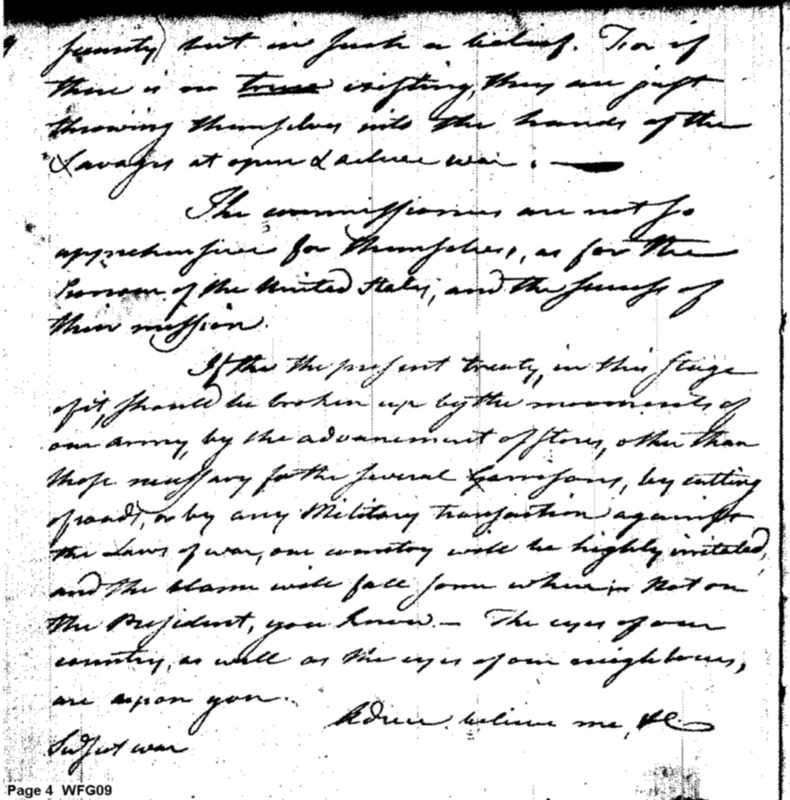 security but in such a belief. For if
there is no truce existing, they are just
throwing themselves into the hands of the
Savages at open & active war. —
The commissioners are not so
apprehensive for themselves, as for the
honour of the United States, and the success of
their mission.
If the the present treaty, in this stage
of it, should be broken up by the movements of
our army, by the advancement of stores, other than
those necessary for the several Garrisons, by cutting
of roads, or by any Military transaction against
the Laws of war, our country will be highly irritated,
and the blame will fall some where. Not on
the President, you know. — The eyes of our
country, as well as the eyes of our neighbours,
are upon you.
believe me, &c.
war
Page 4 WFG09